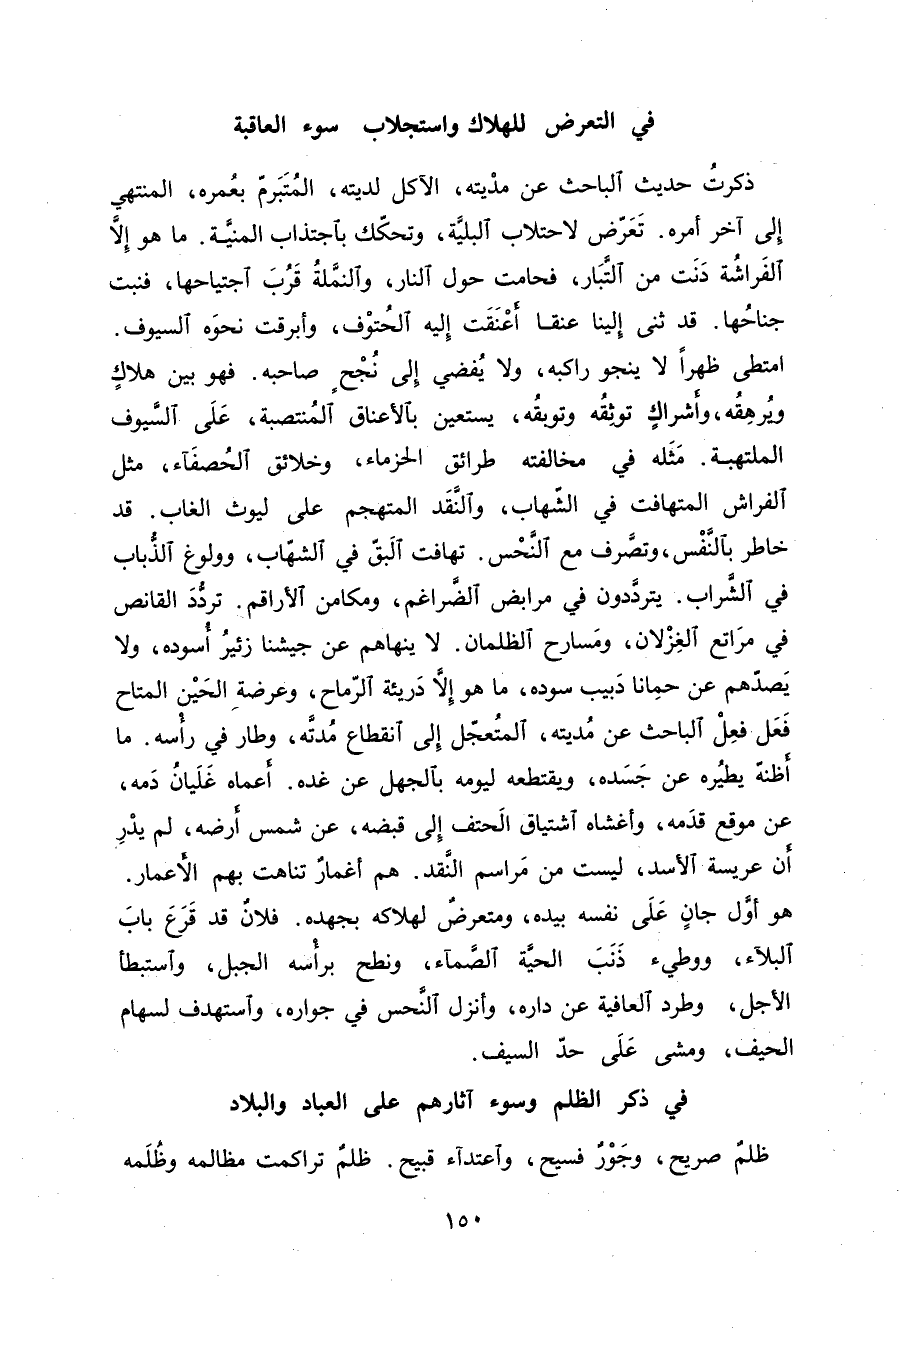 في التعرض للهلاك واستجلاب سوء العاقبة
ذكرتُ حديث ٱلباحث عن مدْيته، الآكل لديته، المُتَبَرمّ بعُمره، المنتهي
إلى آخر أمره. تَعَرّض لاحتلاب ٱلبليَّة، وتحكّك بٱجتذاب المنيَّة. ما هو إلاَّ
ٱلفَراشُة دَنَت من ٱلتَّبَار، فحامت حول ٱلنار، وٱلنَّملةُ قَرُبَ ٱجتياحها، فنبت
جناحُها. قد ثنى إلينا عنقا أَعْنَقَت إليه ٱلحُتوْف، وأبرقت نحوَه ٱلسيوف.
امتطى ظهراً لا ينجو راكبه، ولا يُفضي إلى نُجْحٍ صاحبه. فهو بين هلاكٍ
ويُرهِقُه، وأَشراكٍ توثِقُه وتوبقُه، يستعين بٱلأعناق ٱلمُنتصبة، عَلَى ٱلسَّيوف
الملتهبة. مَثَله في مخالفته طرائق الحزماء، وخلائق ٱلحُصفَآء، مثل
ٱلفراش المتهافت في الشّهاب، وٱلنَّقَد المتهجم على ليوث الغاب. قد
خاطر بٱلنَّفْس، وتصَّرف مع ٱلنَّحْس. تهافت ٱلَبقّ في ٱلشهّاب، وولوغ ٱلذُّباب
في ٱلشَّراب. يتردَّدون في مرابض ٱلضَّراغم، ومكامن ٱلأراقم. تردُّدَ القانص
في مرَاتع ٱلغِزْلان، ومَسارح ٱلظلمان. لا ينهاهم عن جيشنا زئيرُ أُسوده، ولا
يَصدّهم عن حمِانا دَبيب سوده، ما هو إلاَّ دَريئة ٱلرّماح، وعرضة الحَيْن المتاح
فَعَل فعِلْ ٱلباحث عن مُديته، ٱلمتُعجّل إلى ٱنقطاع مُدتَّه، وطار في رأسه. ما
أَظنهّ يطيُره عن جَسَده، ويقتطعه ليومه بٱلجهل عن غده. أَعماه غَلَيانُ دَمه،
عن موقع قدَمه، وأغشاه ٱشتياق الَحتف إلى قبضه، عن شمس أَرضه، لم يدْرِ
أَن عريسة ٱلأسد، ليست من مَراسم النَّقد. هم أغمارٌ تناهت بهم الأَعمار.
هو أوَّل جانٍ عَلَى نفسه بيده، ومتعرضٌ لهلاكه بجهده. فلانٌ قد قَرَعَ بابَ
ٱلبلآء، ووطيء ذَنَبَ الحيَّة ٱلصَّمآء، ونطح برأَسه الجبل، وٱستبطأ
الأجل، وطرد ٱلعافية عن داره، وأنزل ٱلنَّحس في جواره، وٱستهدف لسهام
الحيف، ومشى عَلَى حدّ السيف.
في ذكر الظلم وسوء آثارهم على العباد والبلاد
ظلمٌ صريح، وجَوْرٌ فسيح، وٱعتدآء قبيح. ظلمٌ تراكمت مظالمه وظُلَمه
١٥٠